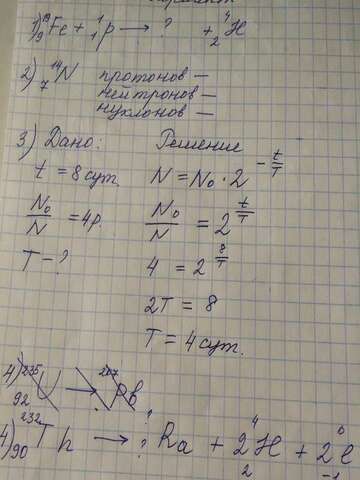 1) ¹⁹₉Fe + ¹₁p → ? + ⁴₂H
2) ¹⁴₇N протонов —
нейтронов —
нуклонов —
3) Дано: Решение
t = 8 сут. N = N₀ · 2^(-t/T)
N₀/N = 4р. N₀/N = 2^(t/T)
T - ? 4 = 2^(8/T)
2T = 8
T = 4 сут.
4) ²³⁵₉₂U → ²⁰⁷Pb
4) ²³²₉₀Th → ?Ra + 2⁴₂H + 2⁰₋₁e